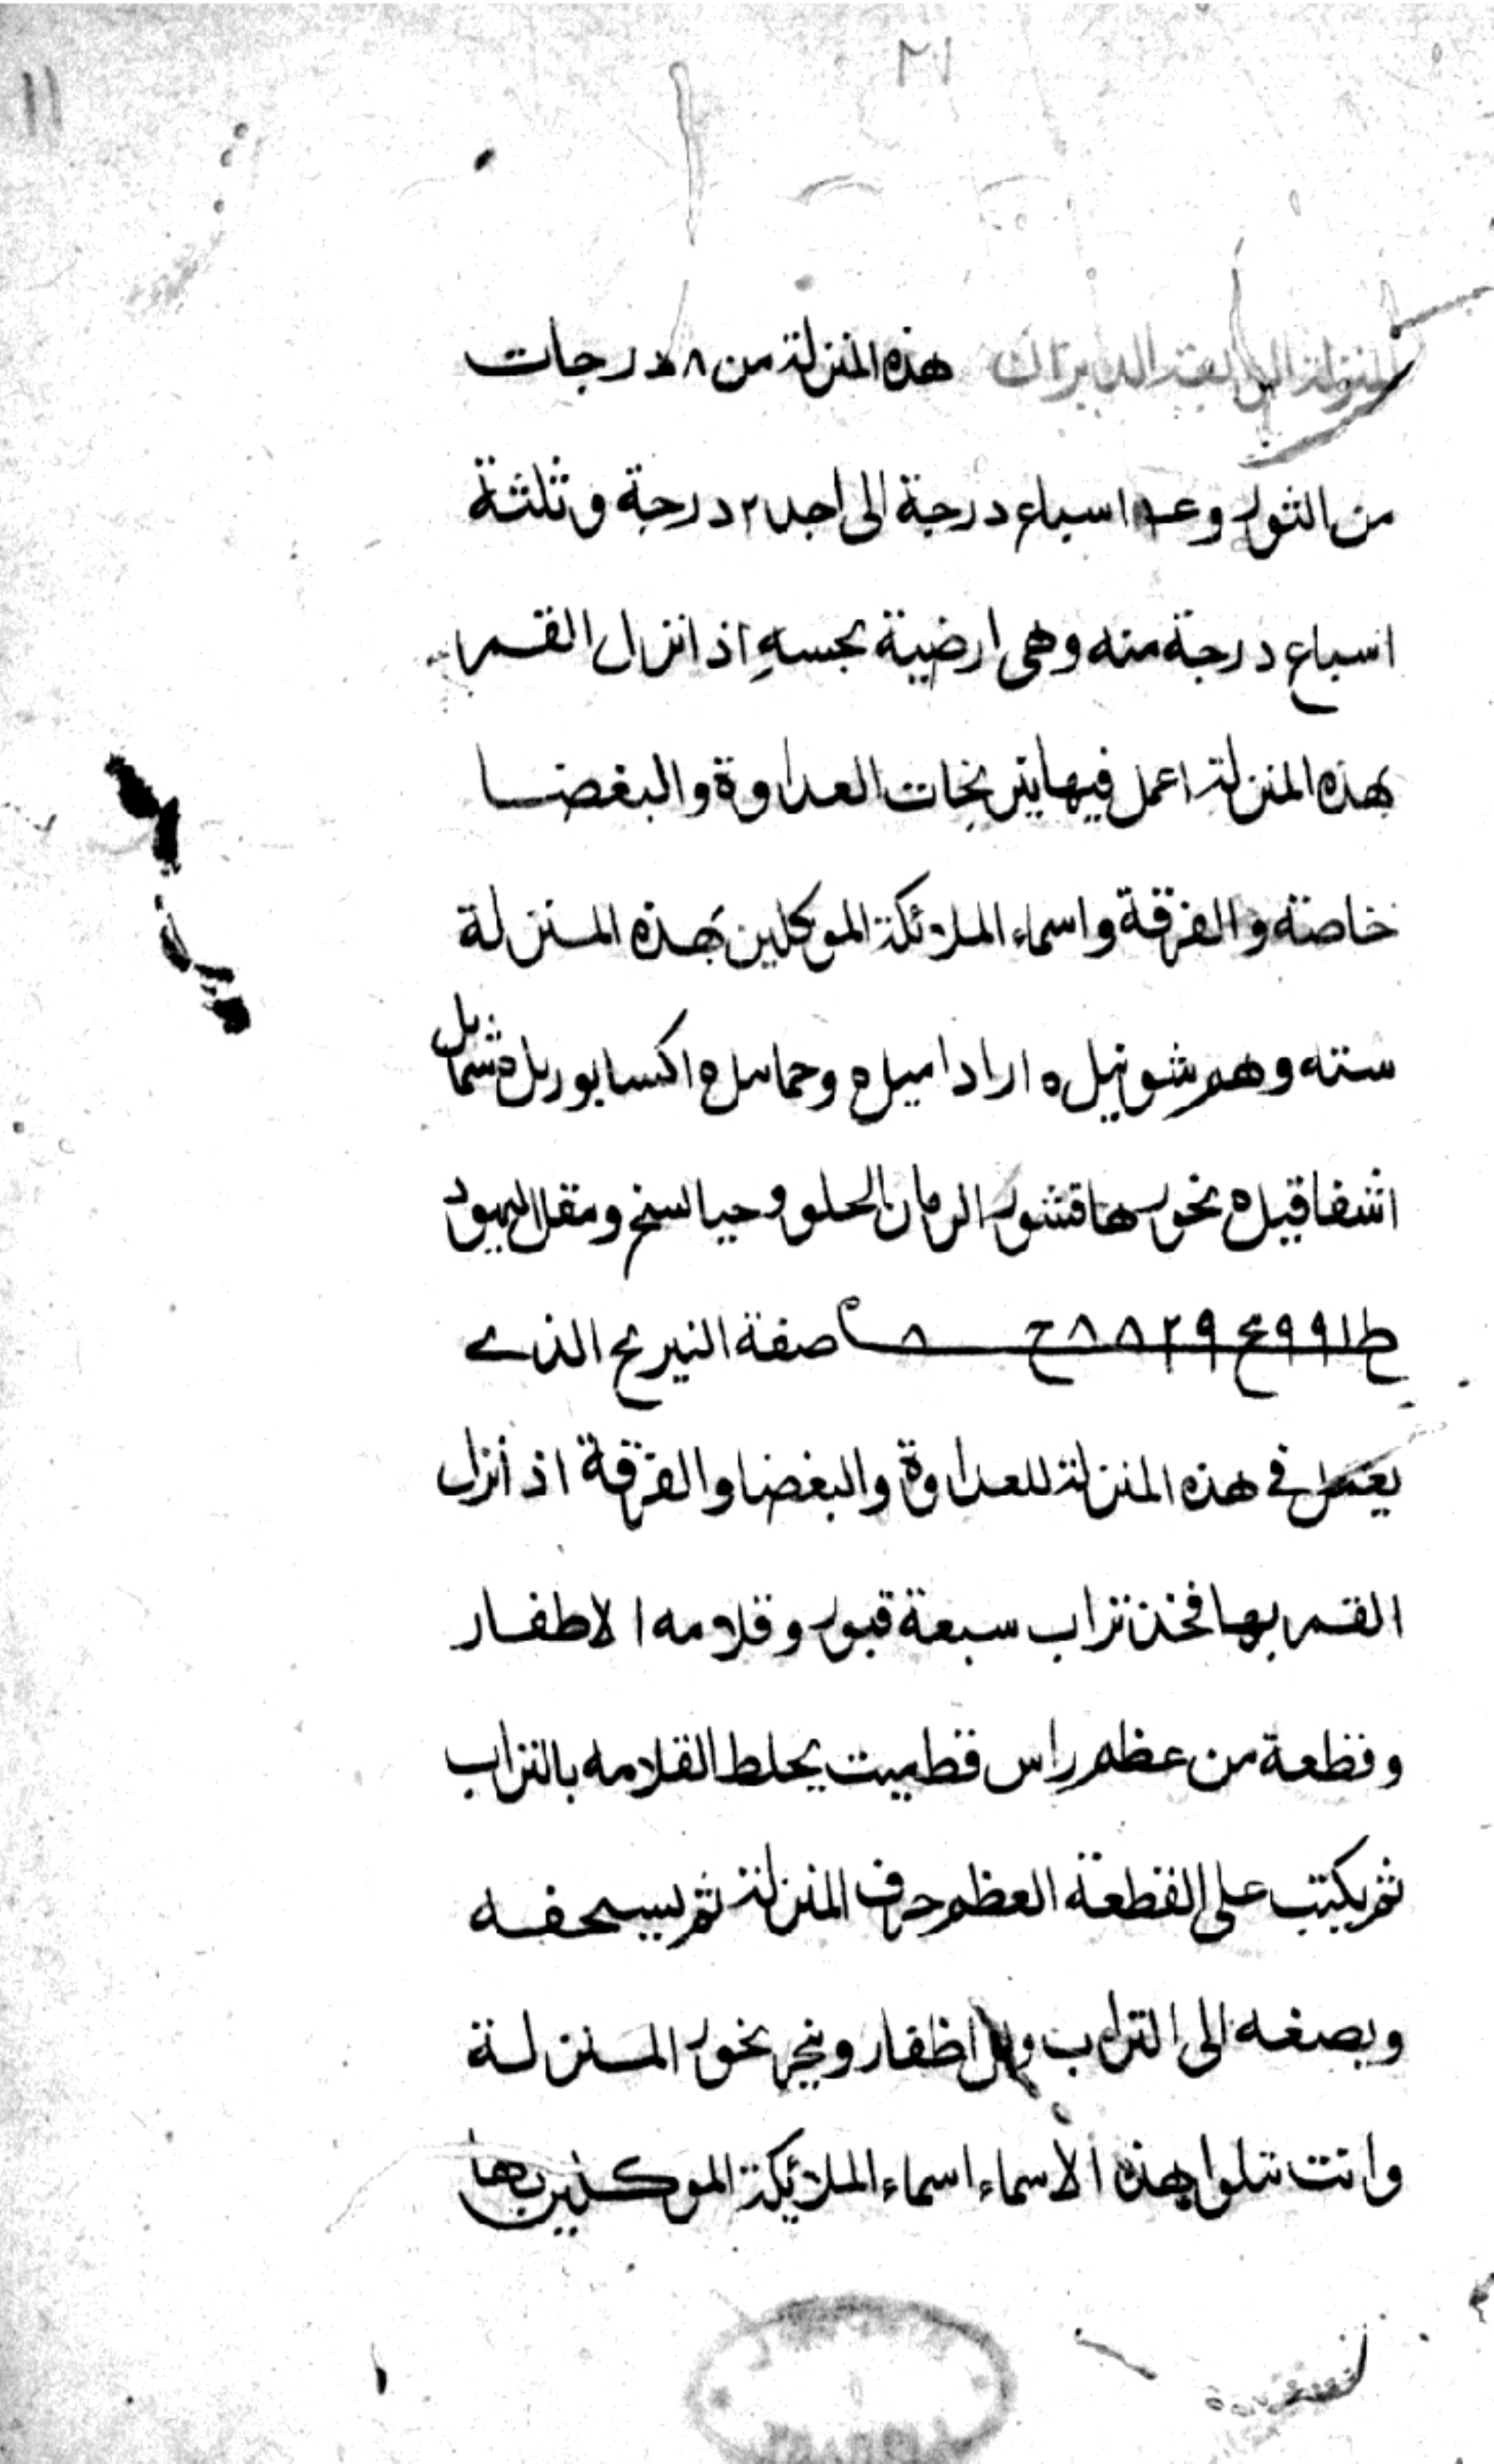 ١١
٢١
المنزلة الرابعة الدبران هذه المنزلة من ٨ درجات
من الثور و اسباع درجة الى احد ٢ درجة وثلثة
اسباع درجة منه وهى ارضية نحسه اذا نزل القمر
بهذه المنزلة اعمل فيها نيرنجات العداوة والبغضا
خاصة والفرقة واسماء الملائكة الموكلين بهذه المنزلة
سته وهم شونيل ه اراداميل ه وحماىىل ه اكسابوريل ه شمائيل
اشفاقيل ه بخورها قشور الرمان الحلو وحيا لسنح ومقل اليهود
صفة النيرنج الذى
يعمل فى هذه المنزلة للعداوة والبغضا والفرقة اذا نزل
القمر بها فخذ تراب سبعة قبور وقلامه الاظفار
وقطعة من عظم راس قط ميت يخلط القلامه بالتراب
ثم يكتب على القطعة العظم حرف المنزلة ثم يسحقه
ويضغه الى التراب والاظفار وبخر بخور المنزلة
وانت تتلوا بهذه الاسماء اسماء الملائكة الموكلين بها